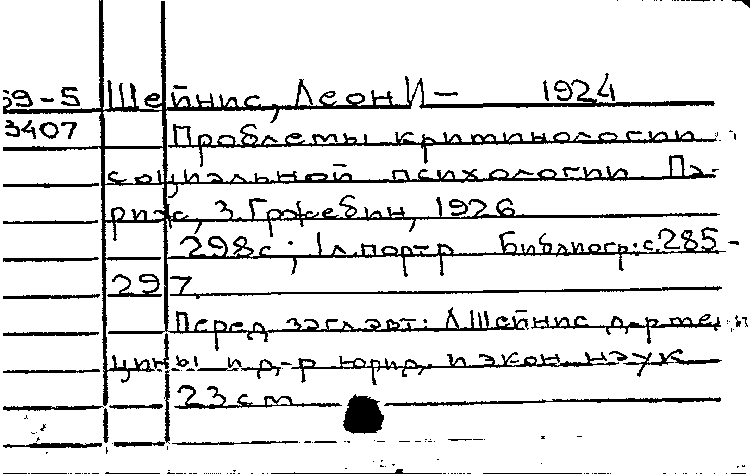 59-5 Шейнис, Леон И — 1924
3407 Проблемы криминологии
социальной психологии Па-
риж, З. Гржебин, 1926
298с; 1л. портр Библиогр: с.285-
297.
Перед заглавт: Л Шейнис д-р меди
цины и д-р юрид. и экон. наук
23cm